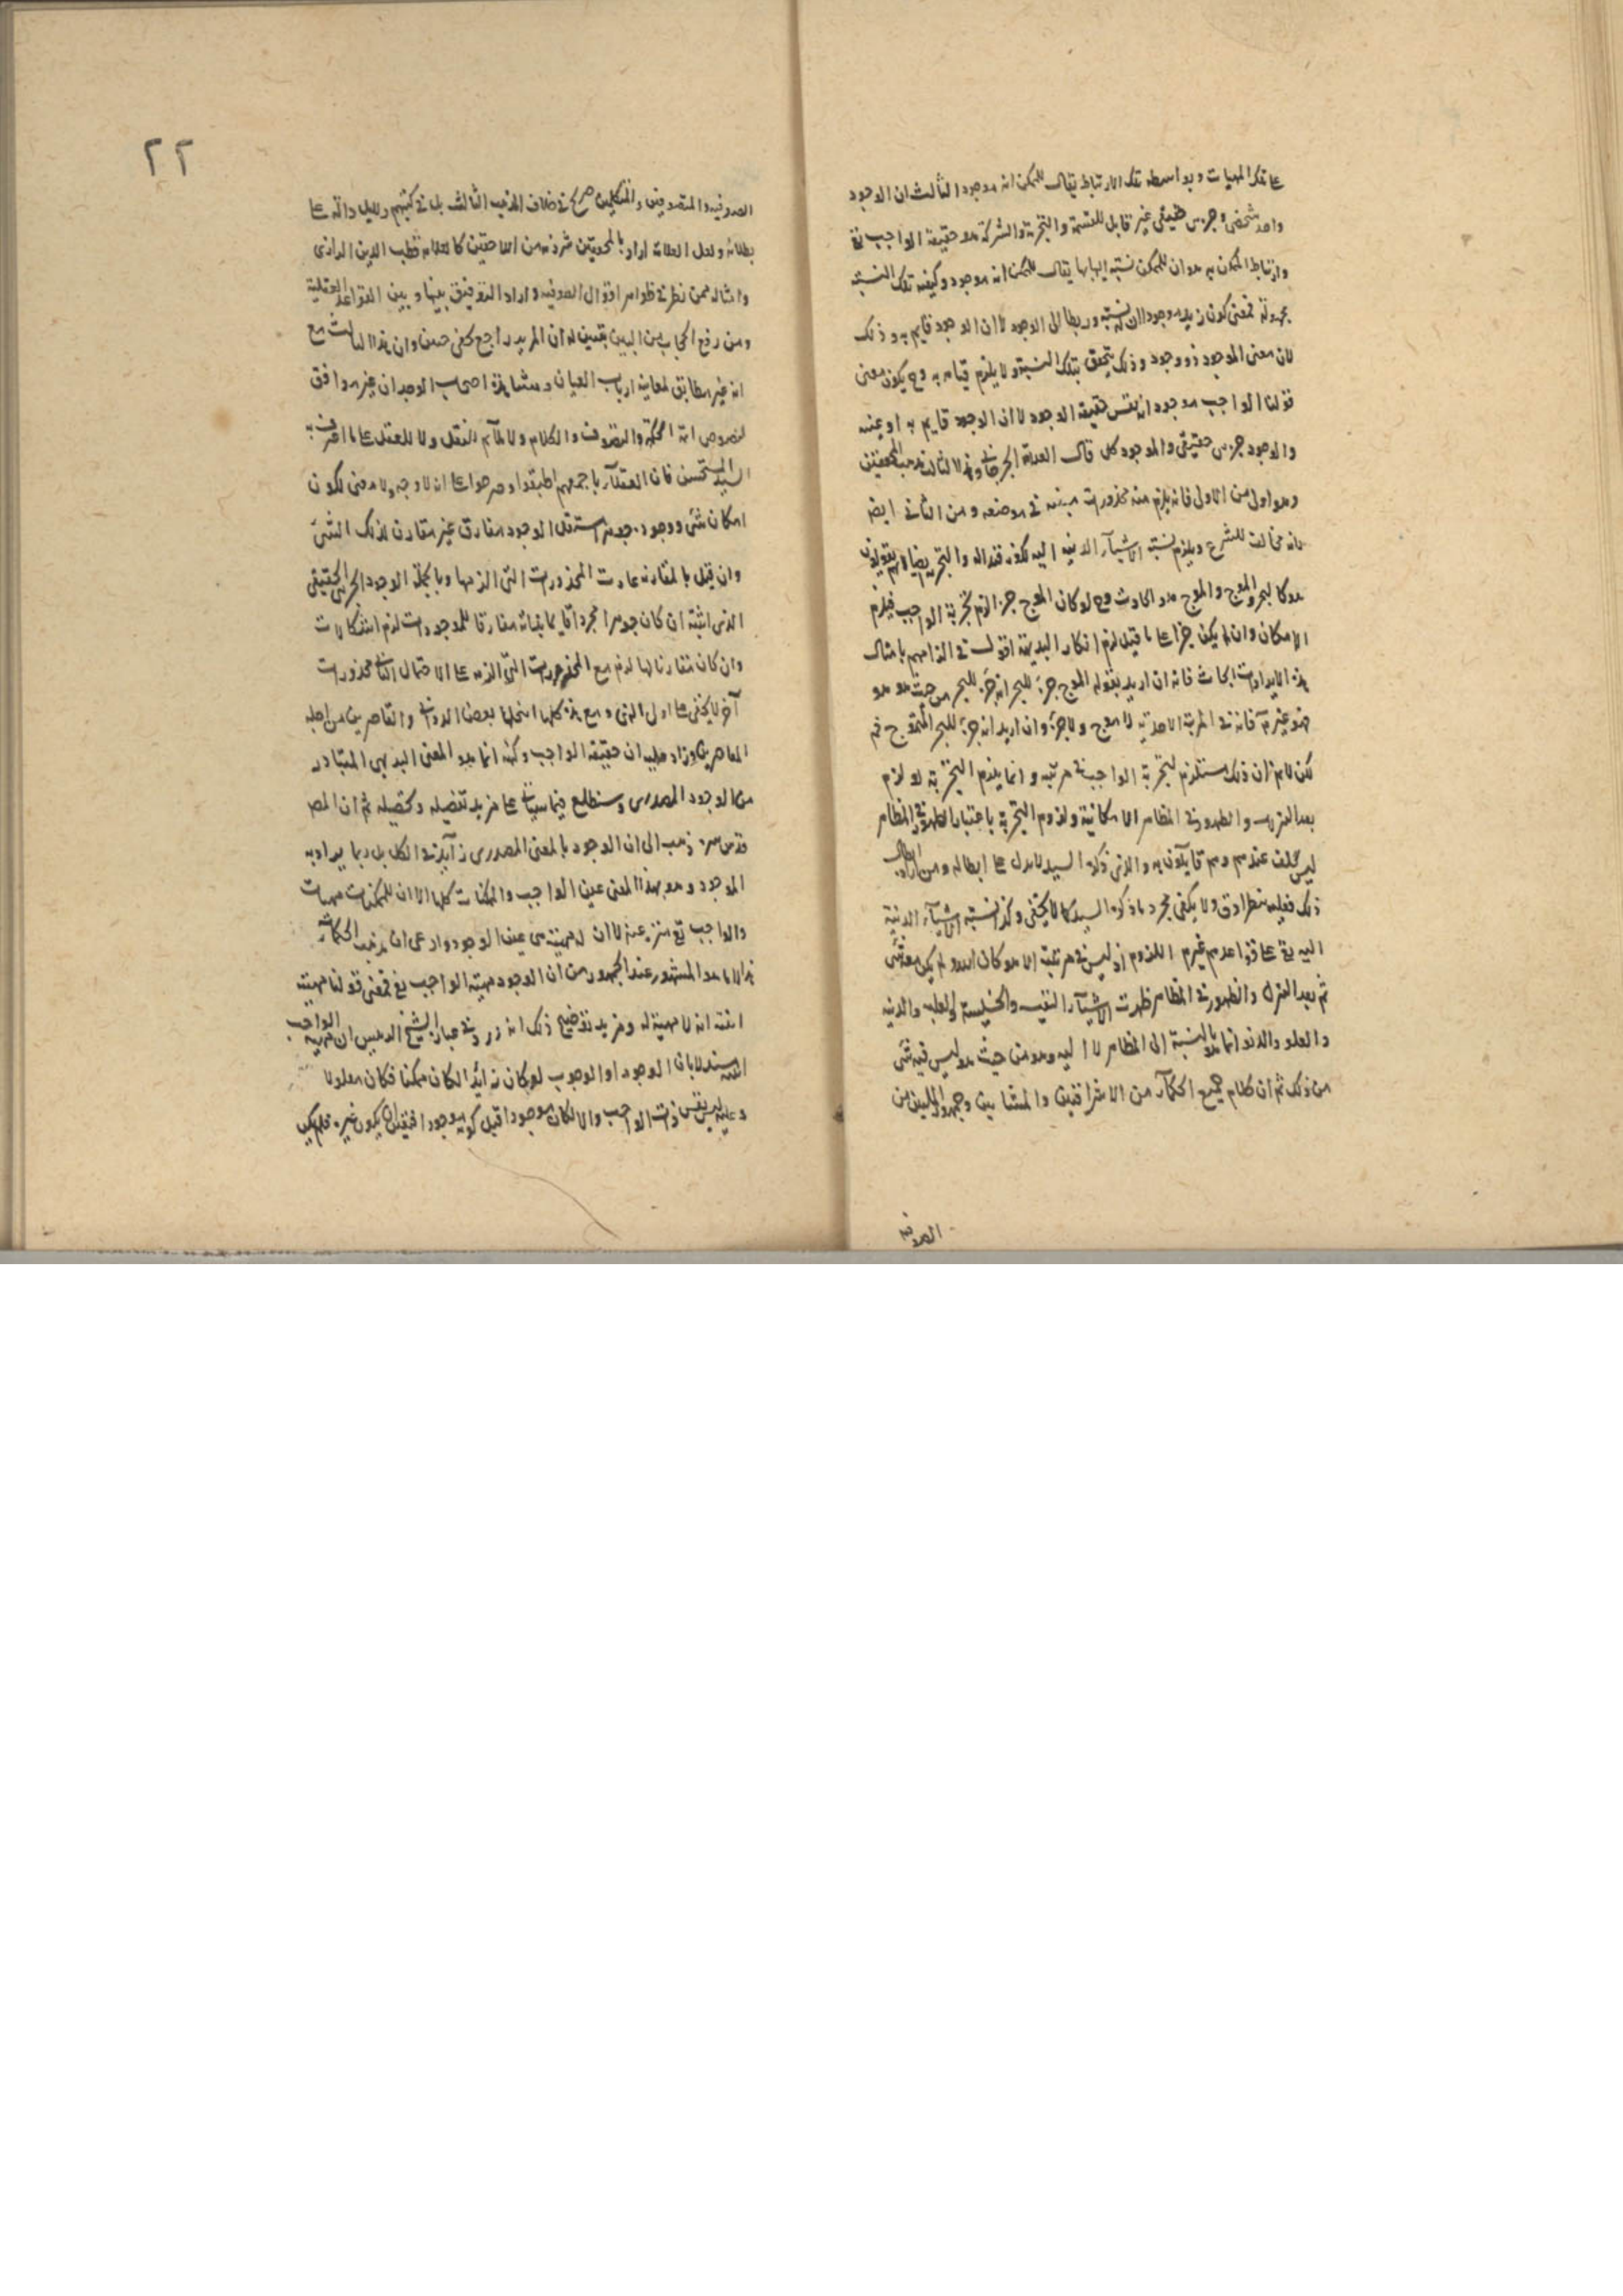 على تلك المهيات وبواسطه تلك الارتباط يقال للممكن انه موجود الثالث ان الوجود
واحد شخصى وجزئى حقيقى غير قابل للقسمة والتجزية والشركة هو حقيقة الواجب تع
وارتباط الممكن به هو ان للممكن نسبته اليها بها يقال للممكن انه موجود وكيفيه تلك النسبه
مجهولة فمعنى كون زيد موجودا ان له نسبته وربطا الى الوجود لا ان الوجود قايم به وذلك
لان معنى الموجود ذو وجود وذلك يتحقق بتلك النسبة ولا يلزم قيامه به وح يكون معنى
قولنا الواجب موجود انه نفس حقيقة الوجود لا ان الوجود قايم به او عينه
والوجود جزئى حقيقى والموجود كلى قال العلامة الجرجانى وهذا الثالث مذهب المحققين
وهو اولى من الاول فانه يلزم منه محذورات مبينه فى موضعه ومن الثانى ايضا
فانه مخالف للشرع ويلزم نسبته الاشيآء الدنيه اليه لكونه والتجزيه ايضا لانهم يقولون
هو كالبحر والموج والموج هو الحادث وح لو كان الموج جزءا لزم تجزية الواجب فيلزم
الامكان وان لم يكن جزءا على ما قيل لزم انكار البديهة اقول فى الزامهم بامثال
هذه الايرادات ابحاث فانه ان اريد بقوله الموج جزء للبحر انه جزء للبحر من حيث هو هو
فهو غير تم فانه فى المرتبة الاحدية لا موج ولا جزء وان اريد انه جزء للبحر المتموج فم
لكن لا نم ان ذلك مستلزم لتجزية الواجب فى مرتبه وانما يلزم التجزية لو لزم
بعد التنزل والظهور فى المظاهر الامكانية ولزوم التجزية باعتبار الظهور فى المظاهر
ليس بخلف عندهم وهم قايلون به والذى ذكره السيد لا يدل على ابطاله ومن اراد ابطال
ذلك فعليه بنظر ادق ولا يكفى مجرد ما ذكره السيد كما لا يخفى وكذا نسبته الاشيآء الدنية
اليه تع على قواعدهم غير م اللزوم اذ ليس فى مرتبة الا هو كان الله ولم يكن معه شى
ثم بعد التنزل والظهور فى المظاهر ظهرت الاشيآء النفيسه والخسيسة والعلية والدنيه
والعلو والدنو انما هو بالنسبة الى المظاهر لا اليه وهو من حيث هو ليس فيه شى
من ذلك ثم ان كلام جميع الحكمآء من الاشراقيين والمشائين وجمهور المليين من
الصوفيه
٢٢
الصوفيه والمتصوفين والمتكلمين صريح فى خلاف المذهب الثالث بل فى كتبهم دلايل دالة على
بطلانه ولعل العلامة اراد بالمحققين شرذمه من اللاحقين كالعلامه قطب الدين الرازى
وامثاله ممن نظر فى ظواهر اقوال الصوفيه واراد التوفيق بينها وبين القواعد العقلية
ومن رفع الحجاب من البين يتبين له ان المريد راجع بخفى حنين وان هذا الثالث مع
انه غير مطابق لمعاينه ارباب العيان ومشاهدة اصحاب الوجدان غير موافق
لنصوص ائمة الحكمة والتصوف والكلام ولا ملآئم للنقل ولا للعقل على ما اعترف به
السيد المستحسن فان العقلآء باجمعهم اطبقوا وصرحوا على انه لا وجه ولا معنى لكون
امكان شى ووجوده جوهرا مستقل الوجود مفارق غير مقارن لذلك الشى
وان قيل بالمقارنه عادت المحذورات التى الزمها وبالجملة الوجود الجزئى الحقيقى
الذى اثبته ان كان جوهرا مجردا قايما بذاته مفارقا للموجودات لزم اشكالات
وان كان مقارنا لها لزم مع المحذورات التى الزمه على الاحتمال الثانى محذورات
آخر لا يخفى على اولى النهى ومع هذه كلها انتحلها بعض الدوانى والقاصرين من اجله
المعاصرين وزاد عليه ان حقيقة الواجب وكنهه انما هو المعنى البديهى المتبادر
من الوجود المصدرى وستطلع فيما سياتى على مزيد تفصيله وتحصيله ثم ان المص
قدس سره ذهب الى ان الوجود بالمعنى المصدرى زايد فى الكل بل ربما يراد به
الموجود وهو بهذا المعنى عين الواجب والممكنات كلها الا ان للممكنات مهيات
والواجب تع منزه عنه لا ان له مهية هى عين الوجود وادعى ان مذهب الحكمآء
هذا لا ما هو المشهور عند الجمهور من ان الوجود مهية الواجب تع فمعنى قولنا مهيته
انيته انه لا مهية له ومزيد توضيح ذلك انه ورد فى عبارة الشيخ الرئيس ان مهية الواجب
انيته مستدلا بان الوجود او الوجوب لو كان زايدا لكان ممكنا فكان معلولا
وعليه ليس نفس ذات الواجب والا لكان موجودا قبل كونه موجودا فيكون غيره فلم يكن